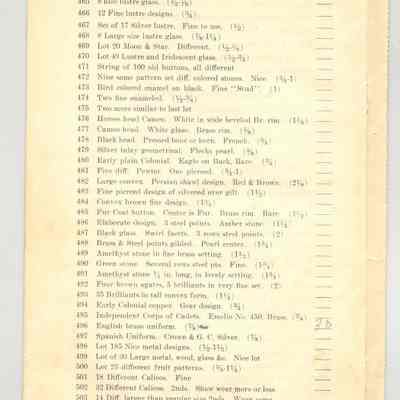 465 8 Blue lustre glass.
466 12 Fine lustre designs. (¾)
467 Set of 17 Silver lustre. Fine to use. (½)
468 8 Large size lustre glass. (⅞-1¼)
469 Lot 20 Moon & Star. Different. (½-¾)
470 Lot 40 Lustre and Iridescent glass. (½-¾)
471 String of 100 old buttons, all different
472 Nine same pattern set diff. colored stones. Nice. (¾-1)
473 Bird colored enamel on black. Fine "Stud". (1)
474 Two fine enameled. (½-¾)
475 Two more similar to last lot
476 Horses head Cameo. White in wide beveled Br. rim
477 Cameo head. White glass. Brass rim.
478 Black head. Pressed bone or horn. French.
479 Silver inlay geometrical. Flecks pearl.
480 Early plain Colonial. Eagle on Back, Rare.
481 Five diff. Pewter. One pierced. (⅝-1)
482 Large convex. Persian shawl design. Red & Brown.
483 Fine pierced design of silvered over gilt. (1½)
484 Convex brown fine design. (1¼)
485 Fur Coat button. Center is Fur. Brass rim. Rare
486 Elaborate design. 3 steel points. Amber stone
487 Black glass. Swirl facets. 3 rows steel points. (2)
488 Brass & Steel points gilded. Pearl center.
489 Amethyst stone in fine brass setting. (1½)
490 Green stone. Several rows steel pts. Fine.
491 Amethyst stone ¾ in. long, in lovely setting.
492 Four brown agates, 5 brilliants in very fine set. (2)
493 35 Brilliants in tall convex form. (1¼)
494 Early Colonial copper. Gear design.
495 Independent Corps of Cadets. Emelio No. 450. Brass.
496 English brass uniform. (⅞)
497 Spanish Uniform. Crown & G. C. Silver. (⅞)
498 Lot 185 Nice metal designs. (½-1½)
499 Lot of 30 Large metal, wood, glass &c. Nice lot
500 Lot 25 different fruit patterns. (⅝-1¼)
501 18 Different Calicos. Fine
502 32 Different Calicos. 2nds. Show wear more or less
503 14 Diff. larger than regular size 2nds. Wear some